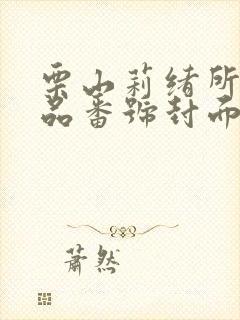 栗山莉绪所
品番號封面
萧然